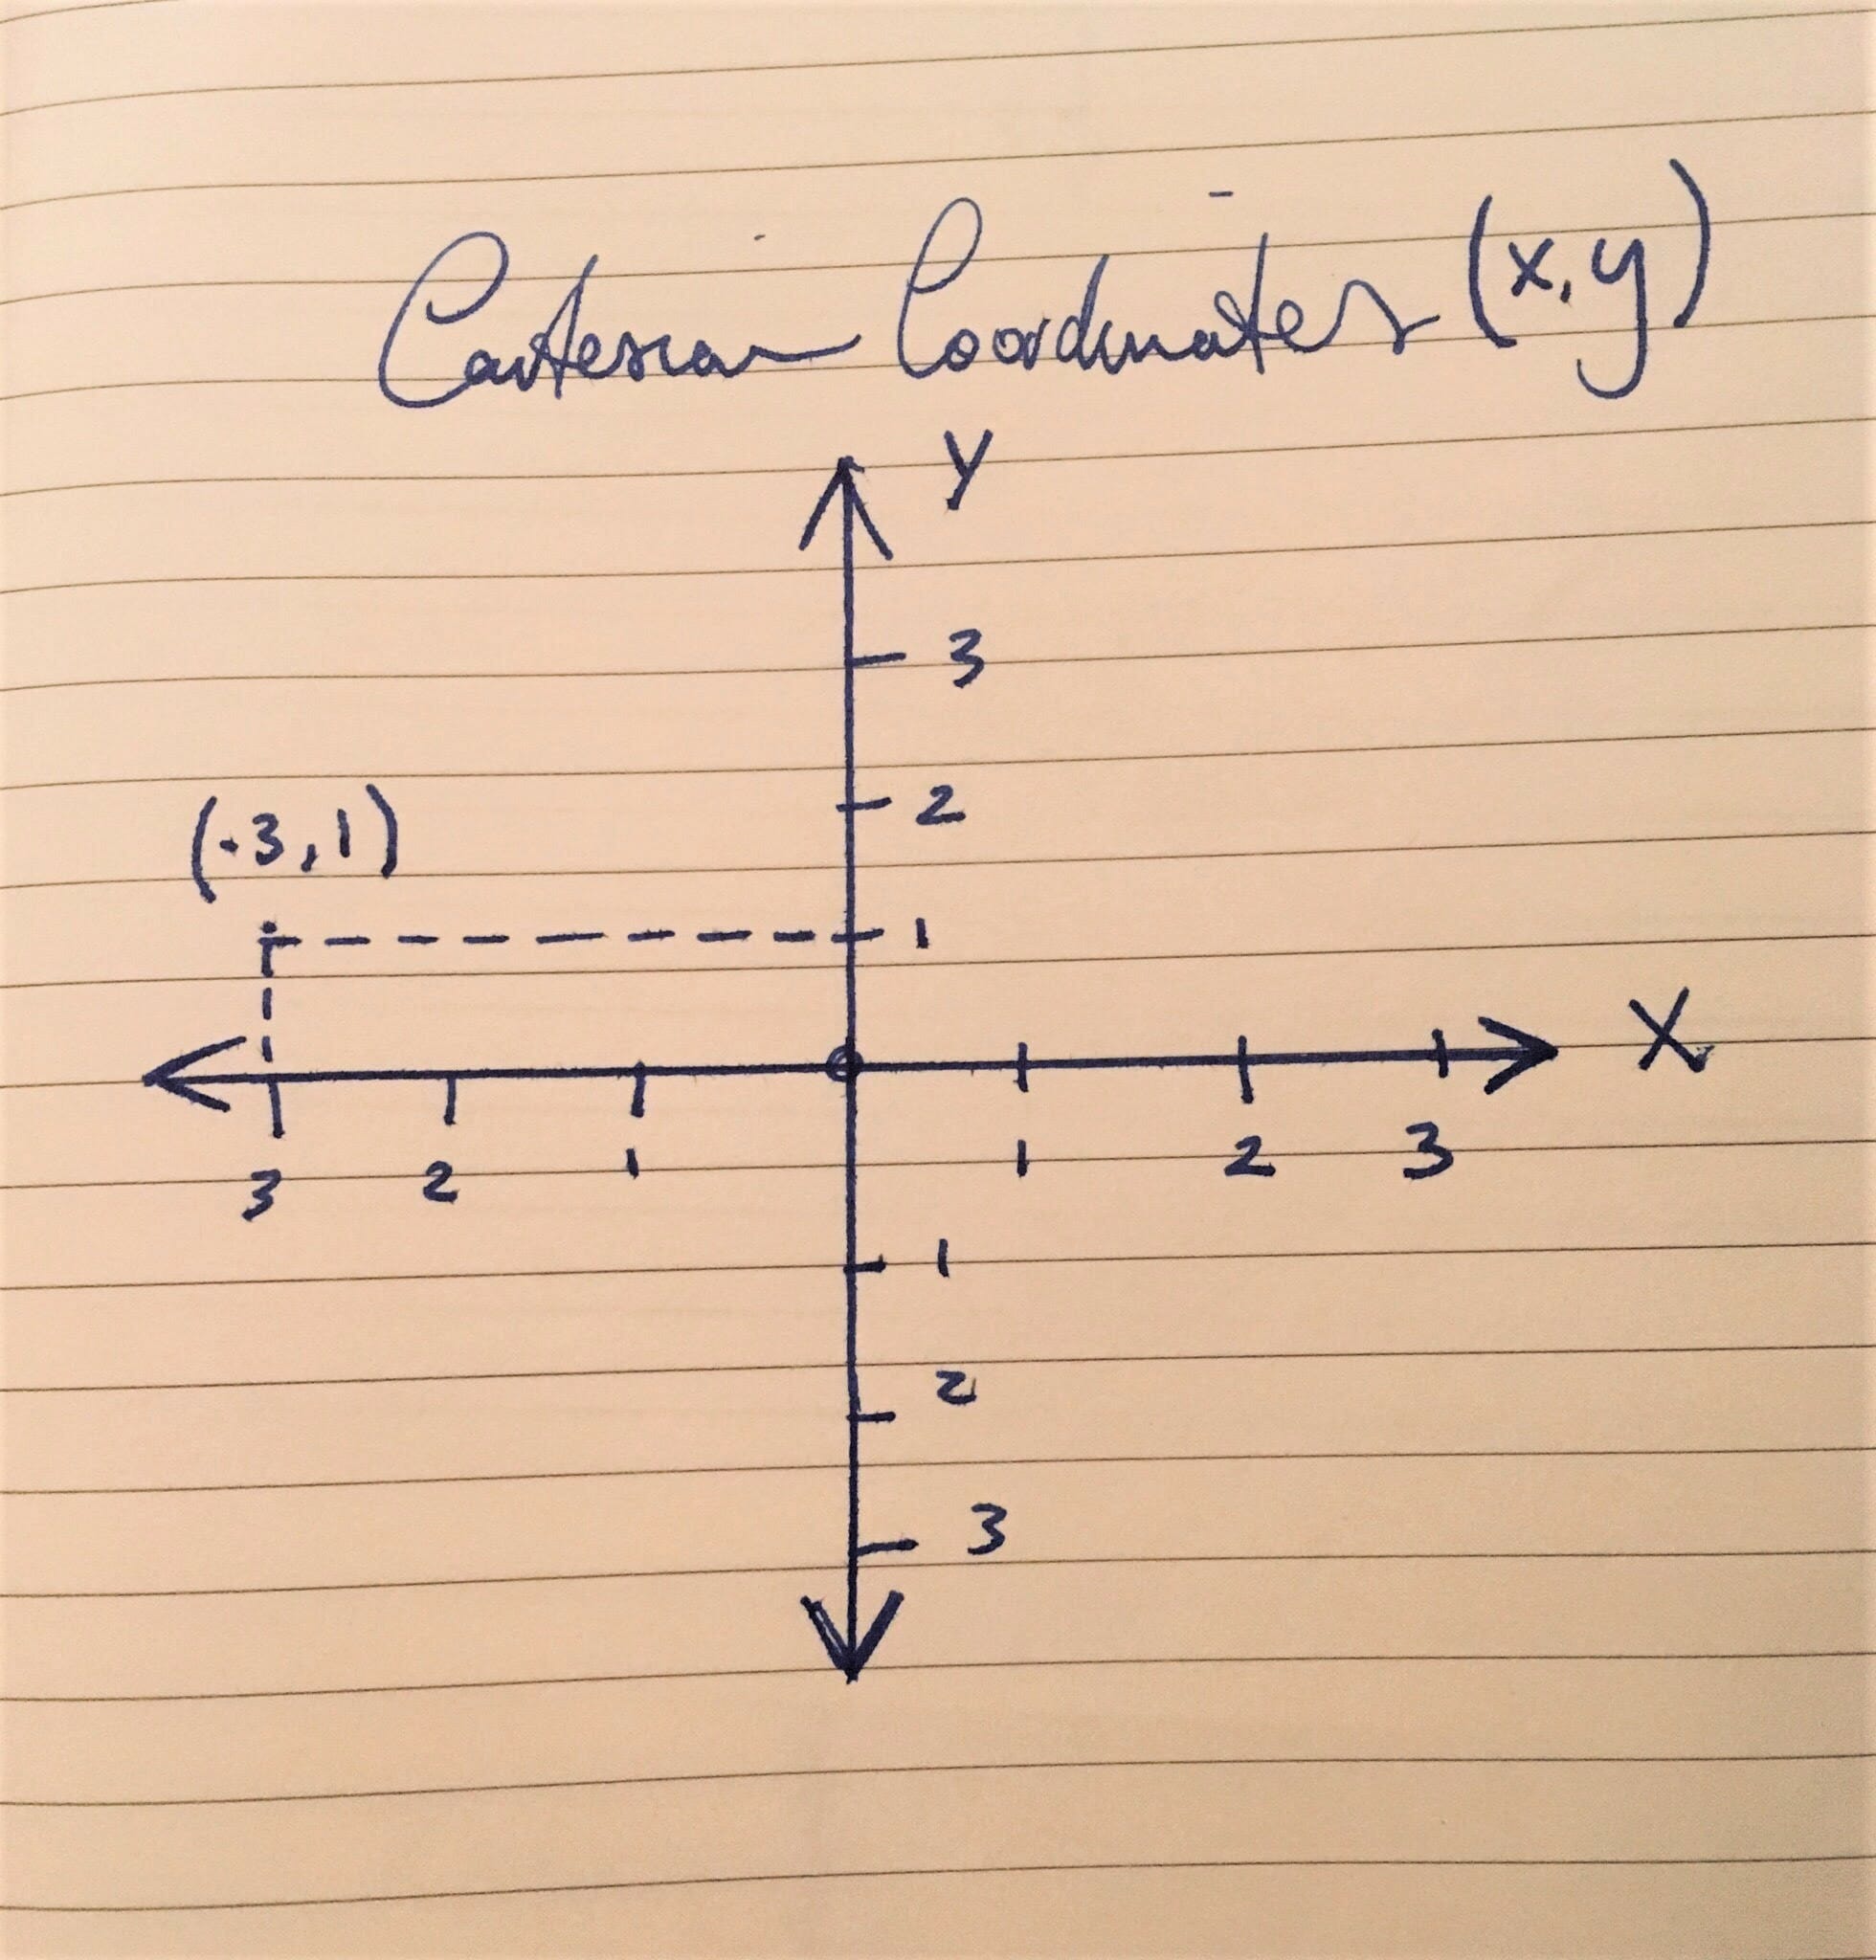 Cartesian Coordinates (x,y)
Y
3
2
(-3,1)
1
X
3 2 1 1 2 3
1
2
3